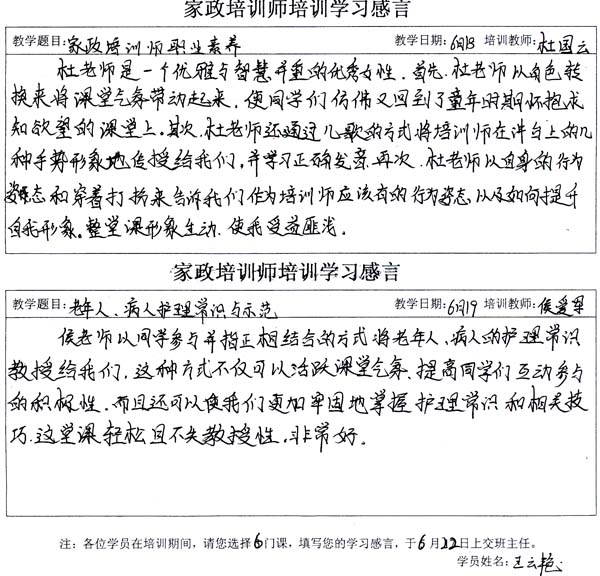 家政培训师培训学习感言
教学题目:家政培训师职业素养 教学日期:6月13 培训教师:杜国云
杜老师是一个优雅与智慧并重的优秀女性。首先,杜老师以角色转
换来将课堂气氛带动起来,使同学们仿佛又回到了童年时期怀抱求
知欲望的课堂上。其次,杜老师还通过儿歌的方式将培训师在讲台上的几
种手势形象地传授给我们,并学习正确发音。再次,杜老师以自身的行为
姿态和穿着打扮来告诉我们作为培训师应该有的行为姿态,以及如何提升
自我形象。整堂课形象生动,使我受益匪浅。
家政培训师培训学习感言
教学题目:老年人、病人护理常识与示范 教学日期:6月19 培训教师:侯爱军
侯老师以同学参与并指正相结合的方式将老年人、病人的护理常识
教授给我们,这种方式不仅可以活跃课堂气氛,提高同学们互动参与
的积极性,而且还可以使我们更加牢固地掌握护理常识和相关技
巧。这堂课轻松且不失教授性,非常好。
注:各位学员在培训期间,请您选择6门课,填写您的学习感言,于6月22日上交班主任。
学员姓名:王云艳